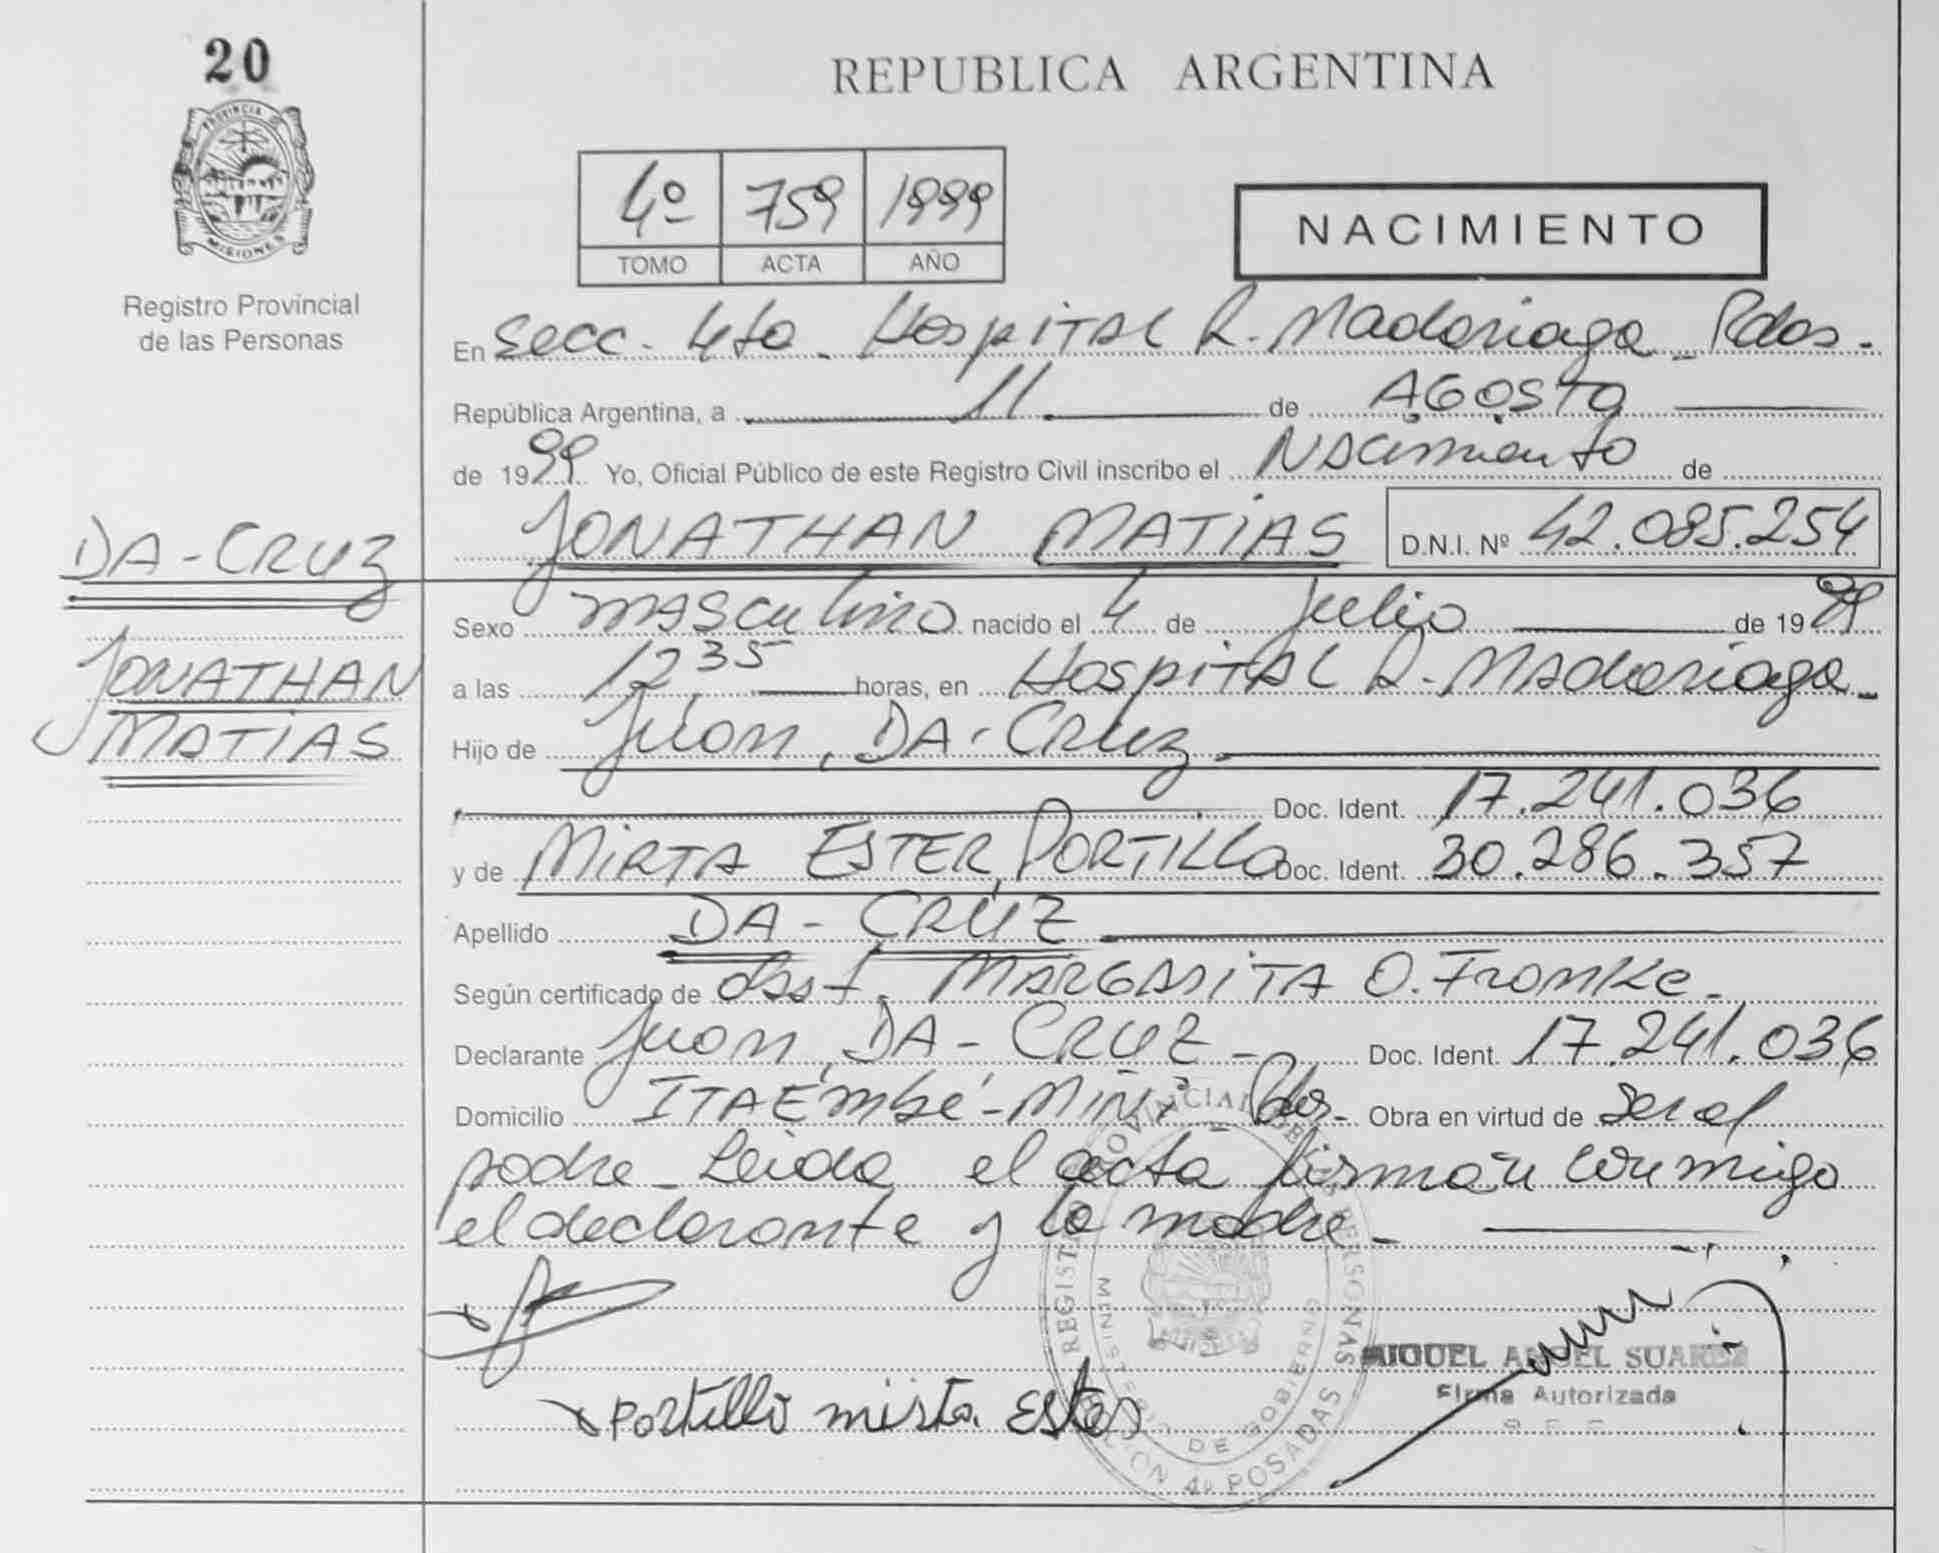 20
PROVINCIA DE
MISIONES
Registro Provincial
de las Personas
DA-CRUZ
JONATHAN
MATIAS
REPUBLICA ARGENTINA
4º 759 1999
TOMO ACTA AÑO
NACIMIENTO
En Secc. 4ta. Hospital R. Madariaga - Pdas.
República Argentina, a 11 de AGOSTO
de 1999 Yo, Oficial Público de este Registro Civil inscribo el Nacimiento de
JONATHAN MATIAS D.N.I. Nº 42.085.254
Sexo masculino nacido el 4 de Julio de 1999
a las 12,35 horas, en Hospital R. Madariaga-
Hijo de Juan, DA-Cruz
Doc. Ident. 17.241.036
y de MIRTA ESTER, PORTILLO Doc. Ident. 30.286.357
Apellido DA-CRUZ
Según certificado de Obst. MARGARITA O. Franke-
Declarante Juan, DA-CRUZ- Doc. Ident. 17.241.036
Domicilio ITAÉMbé-MINÍ- Pdas- Obra en virtud de ser el
padre - Leída el acta firman conmigo
el declarante y la madre-
REGISTRO PROVINCIAL DE LAS PERSONAS
MINISTERIO DE GOBIERNO
POSADAS
MIGUEL ANGEL SUAREZ
Firma Autorizada
Portillo mirta Ester